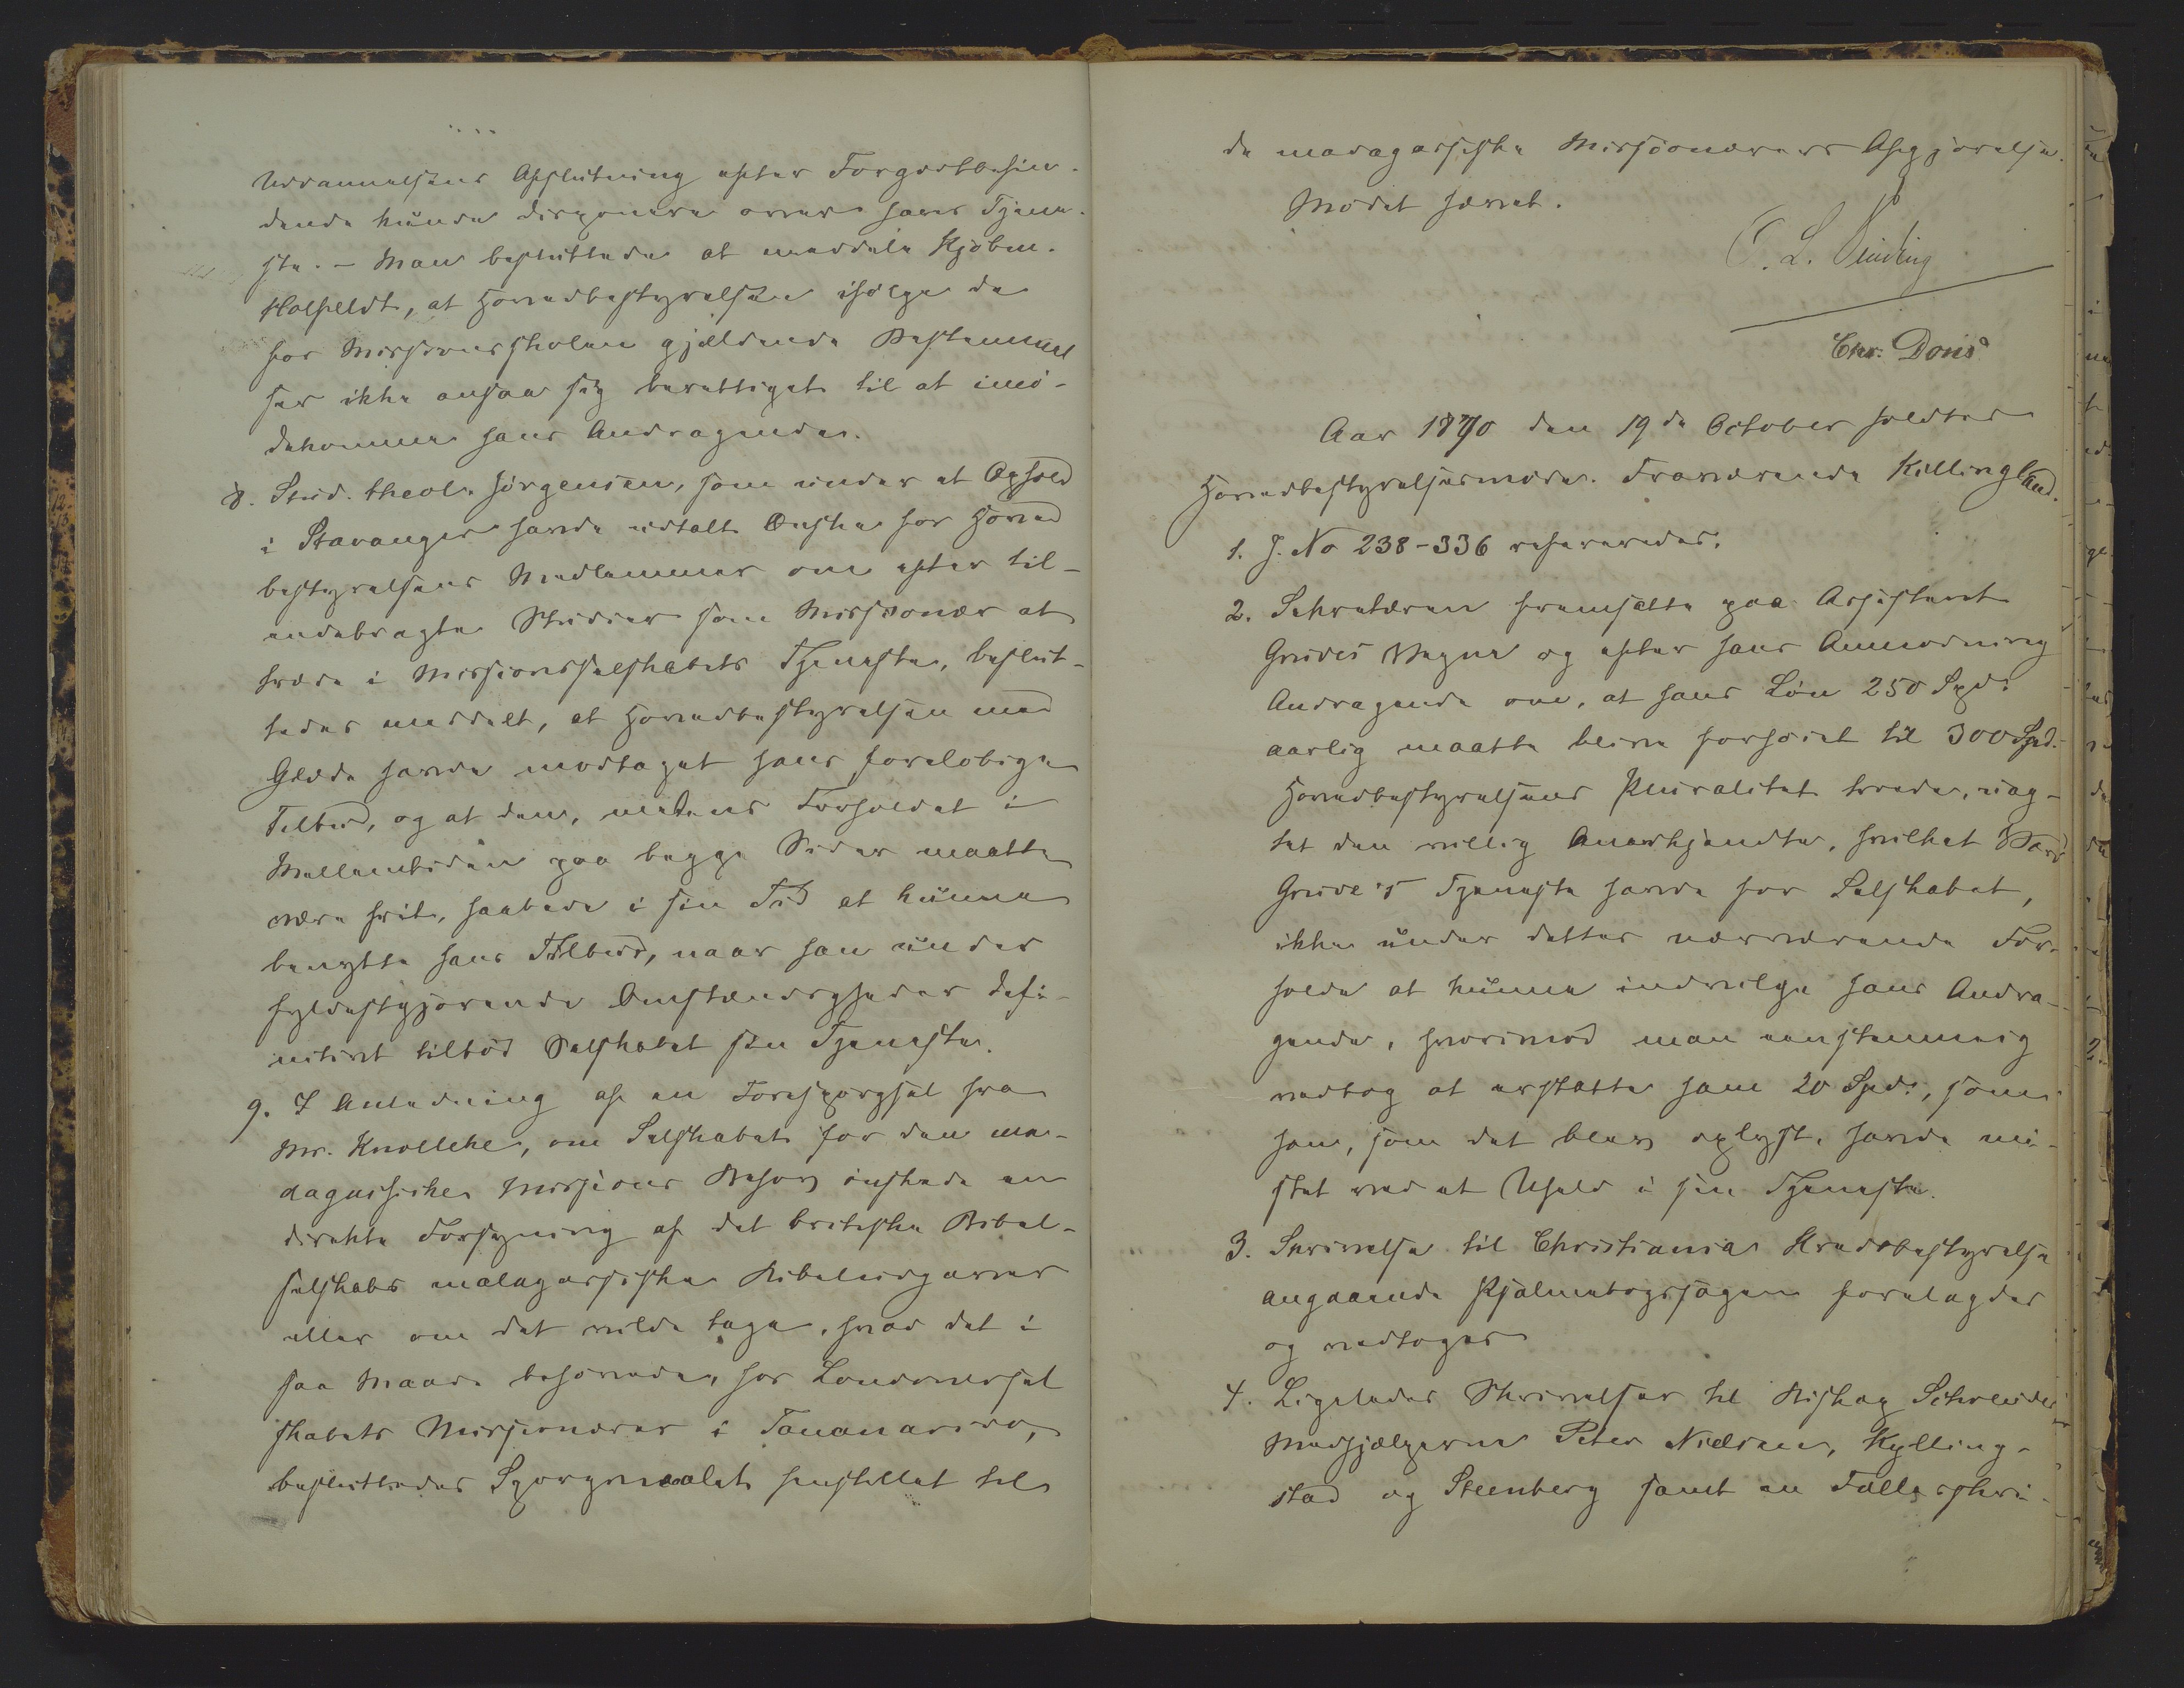 Uddannelsens Afslutning efter Forgodtbefin-
dende kunde disponere over hans Tjene-
ste. – Man besluttede at meddele Kjøbm.
Holfeldt, at Hovedbestyrelsen ifølge de
for Missionsskolen gjældende Bestemmel
ser ikke ansaa sig berettiget til at imø-
dekomme hans Andragende.
8. Stud. theol. Jørgensen, som under et Ophold
i Stavanger havde udtalt Ønske for Hoved
bestyrelsens Medlemmer om efter til-
endebragte Studier som Missionær at
træde i Missionsselskabets Tjeneste, beslut-
tedes meddelt, at Hovedbestyrelsen med
Glæde havde modtaget hans foreløbige
Tilbud, og at den, medens Forholdet i
Mellemtiden paa begge Sider maatte
være frit, haabede i sin Tid at kunne
benytte hans Tilbud, naar han under
fyldestgjørende Omstændigheder defi-
nitivt tilbød Selskabet sin Tjeneste.
9. I Anledning af en Forespørgsel fra
Mr. Knolleke, om Selskabet for den ma-
dagassiske Missions Behov ønskede en
direkte Forsyning af det britiske Bibel-
selskabs malagassiske Bibeludgaver
eller om det vilde tage, hvad det i
saa Maade behøvede, hos Londonersel
skabets Missionærer i Tananarivo,
besluttedes Spørgsmaalet henstillet til
de madagassiske Missionærers Afgjørelse.
Mødet hævet.
Chr. Dons
Aar 1870 den 19de October holdtes
Hovedbestyrelsesmøde. Fraværende Killingland.
1. J. No 238-336 refereredes.
2. Sekretæren fremsatte paa Assistent
Grude's Vegne og efter hans Anmodning
Andragende om, at hans Løn 250 Spd.
aarlig maatte blive forhøiet til 300 Spd.
Hovedbestyrelsens Pluralitet troede, uag-
tet den villig anerkjendte, hvilket Værd
Grude's Tjeneste havde for Selskabet,
ikke under dettes nærværende For-
holde at kunne indvilge hans Andra-
gende, hvorimod man eenstemmig
vedtog at erstatte ham 20 Spd., som
han, som det blev oplyst, havde mi-
stet ved et Uheld i sin Tjeneste.
3. Skrivelse til Christiania Kredsbestyrelse
angaaende Psalmebogssagen forelagdes
og vedtoges
4. Ligeledes Skrivelser til Biskop Schreuder
Medhjælperne Peter Nielsen, Kylling-
stad og Steenberg samt en Fællesskri-